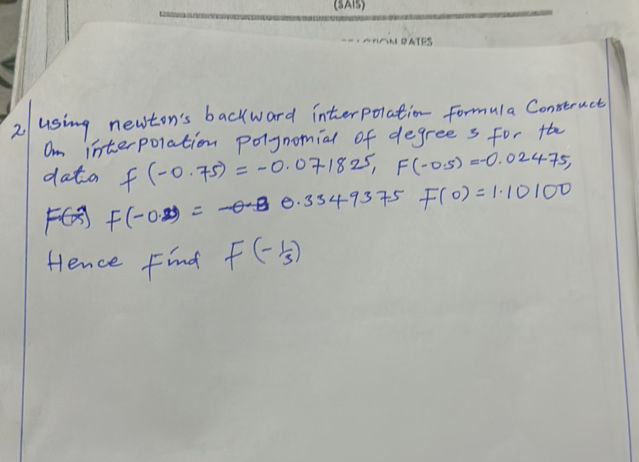 (SAIS)
RATES
2. using newton's backward interpolation formula Construct
an interpolation polynomial of degree 3 for the
data f(-0.75) = -0.071825, F(-0.5) = -0.02475,
= 0.3349375 F(0) = 1.10100
Hence Find F(-1/3)